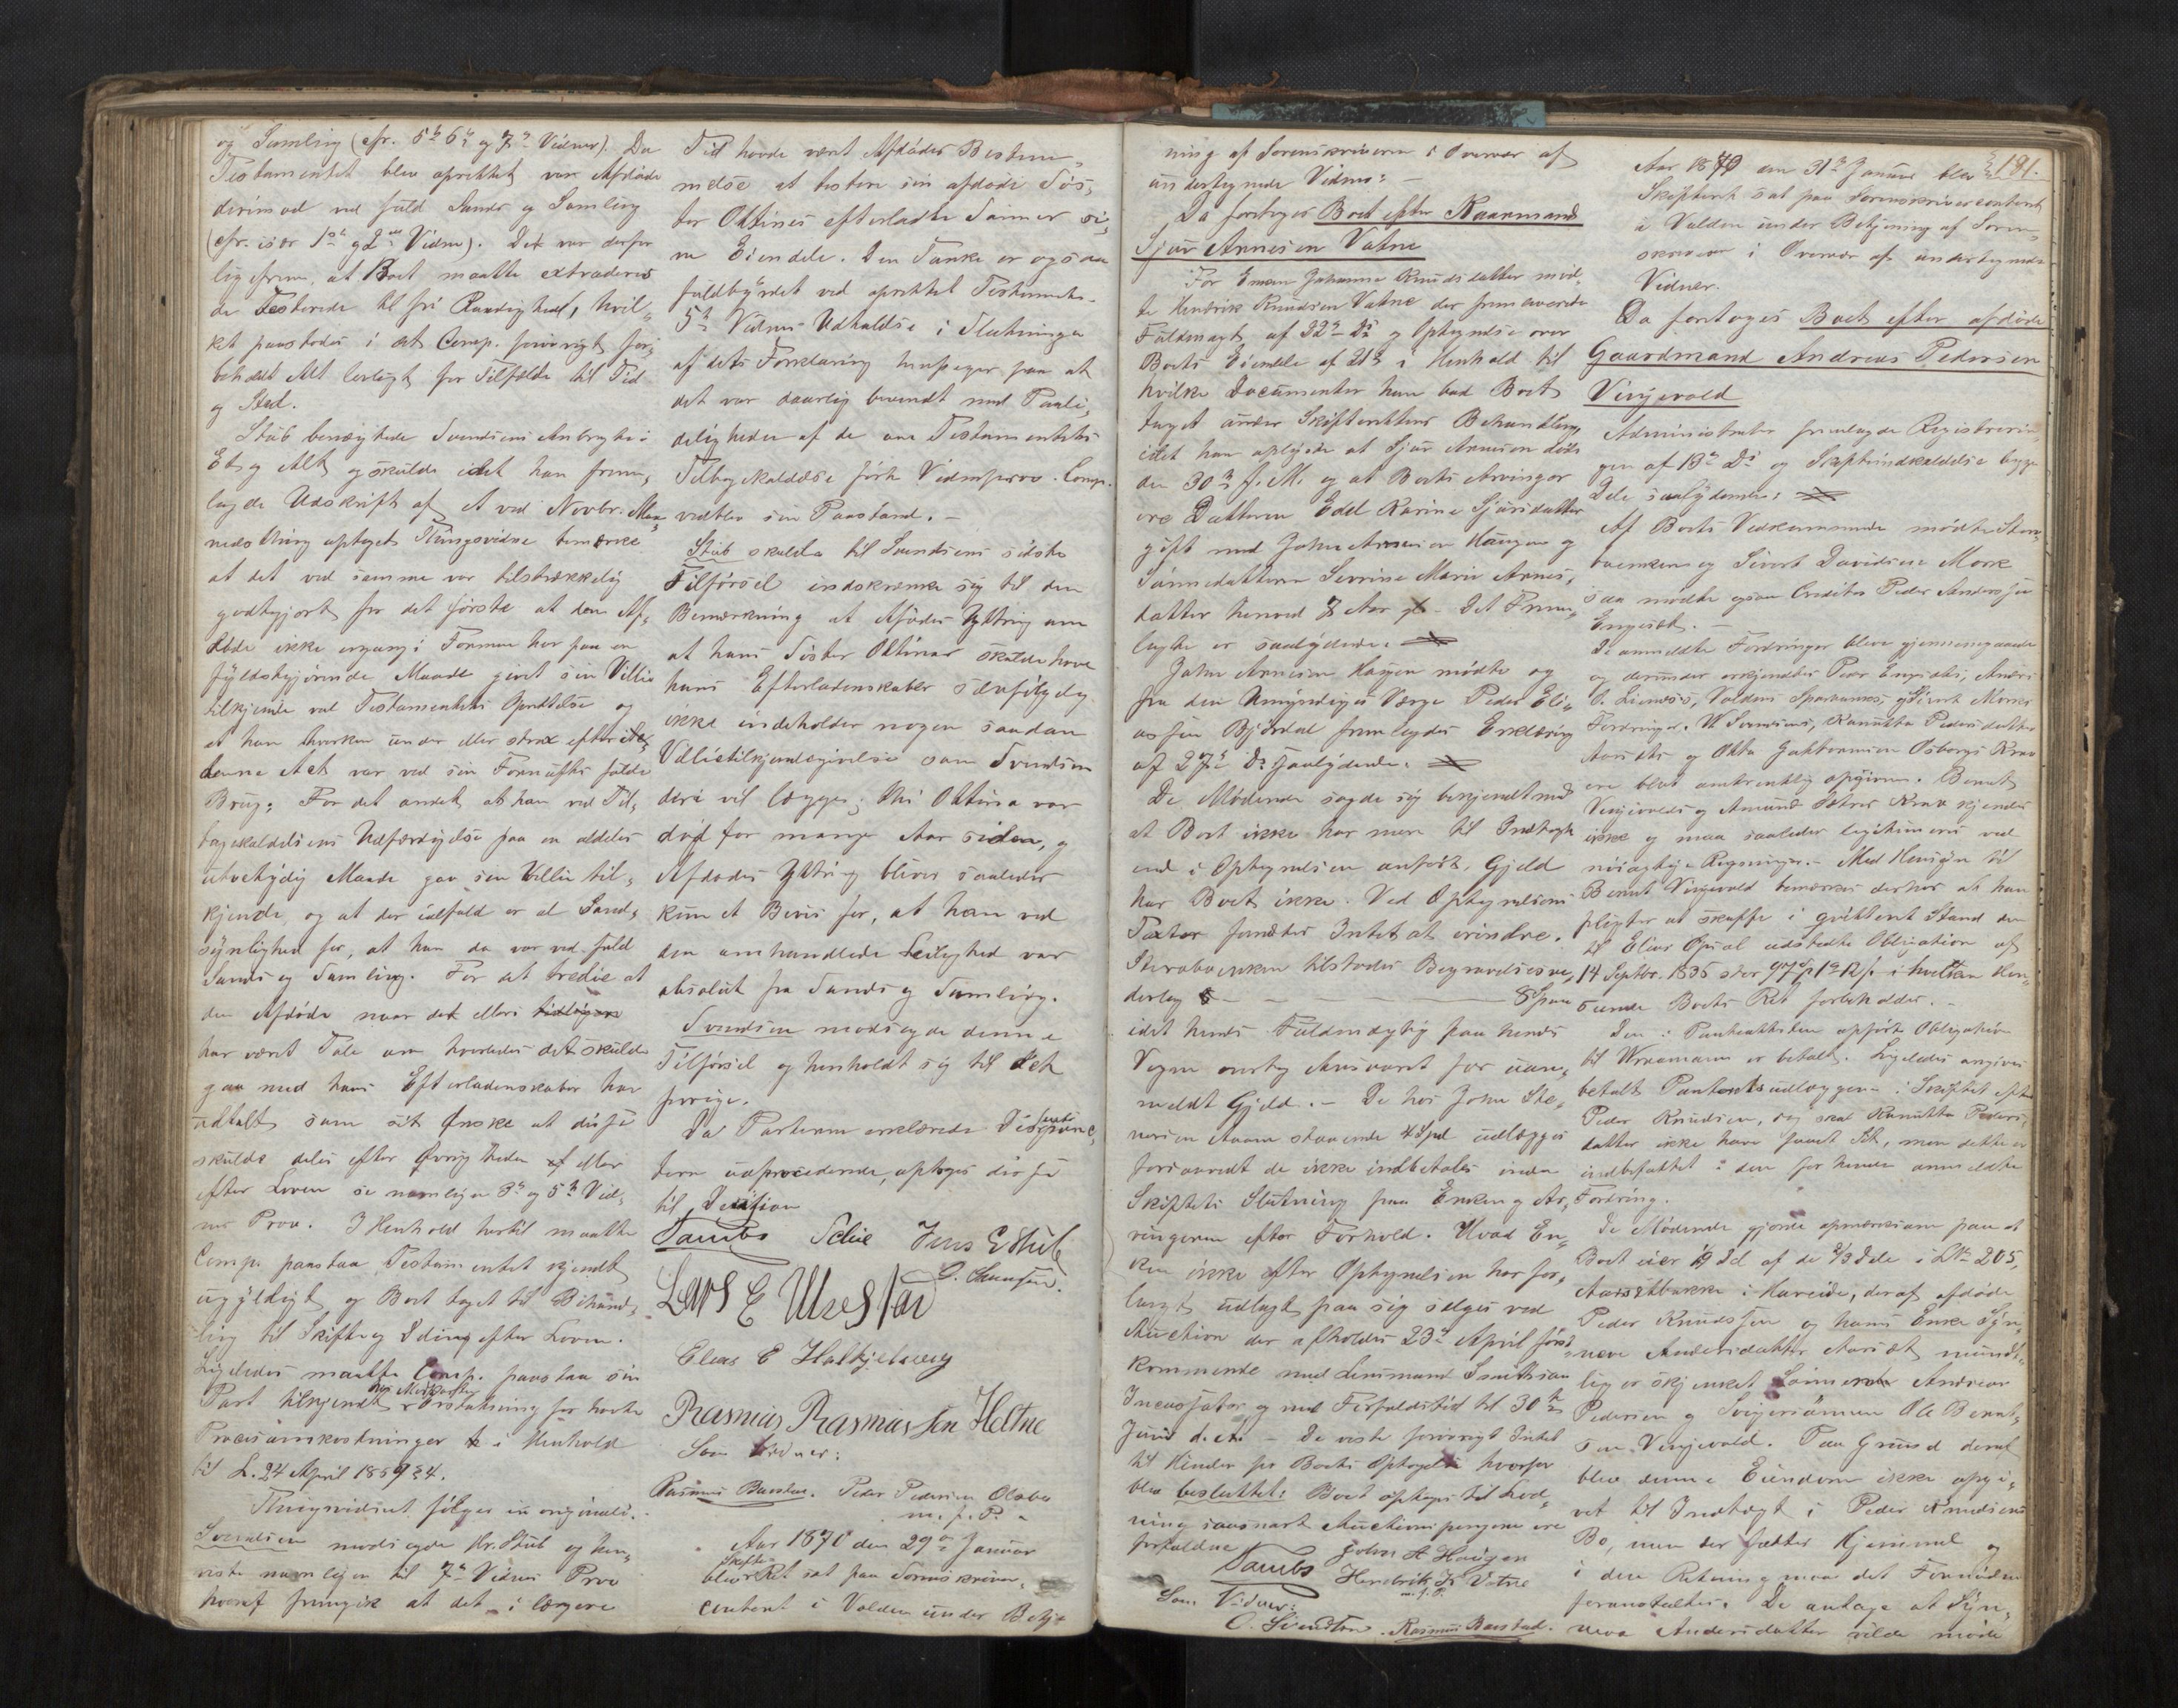 og Samling (cfr. 5te 6te og 7de Vidner). Da
Testamentet blev oprettet var Afdøde
derimod ved fuld Sands og Samling
(cfr. især 1ste og 2det Vidne). Det var derfor
ligefrem, at Boet maatte extraderes
de Testerede til fri Raadighed, hvil-
ket paastodes i det Comp. forøvrigt for-
beholdt Alt lovligt for Tilfælde til Tid
og Sted.
Stub benægtede Svendsens Anbragte i
Et og Alt og skulde idet han frem-
lagde Udskrift af et ved Novbr. Maa-
nedsthing optaget Thingsvidne bemærke
at det ved samme var tilstrækkelig
godtgjort for det første at den Af-
døde ikke engang i Formen har paa en
fyldestgjørende Maade givet sin Villie
tilkjende ved Testamentets Oprettelse og
at han hverken under eller strax efter
denne Act var ved sin Fornufts fulde
Brug; For det andet at han ved Til-
bagekaldelsens Udfærdigelse paa en aldeles
utvetydig Maade gav sin Villie til-
kjende, og at der ialfald er al Sand-
synlighed for, at han da var ved fuld
Sands og Samling. For det tredie at
den Afdøde naar det ellers
har været Tale om hvorledes det skulde
gaa med hans Efterladenskaber har
udtalt som sit Ønske at disse
skulde deles efter Øvrigheden eller
efter Loven se navnligen 3de og 5te Vid-
nes Prov. I Henhold hertil maatte
Comp. paastaa Testamentet kjendt
ugyldigt og Boet taget til Behand-
ling til Skifte og Deling efter Loven.
Ligeledes maatte Comp. paastaa sin
Part tilkjendt Erstatning for havte
Procesomkostninger i Henhold
til L. 24 April 1859 § 4.
Thingsvidnet følger in originali.
Svendsen modsagde Hr. Stub og hen-
viste navnligen til 7de Vidnes Prov
hvoraf fremgik at det i længere
Tid havde været Afdødes Bestem-
melse at testere sin afdøde Søs-
ter Oktines efterladte Sønner si-
ne Eiendele. Den Tanke er ogsaa
fuldbyrdet ved oprettet Testament.
5te Vidnes Udtalelse i Slutningen
af dets Forklaring henpeger paa at
det var daarlig bevendt med Paali-
deligheden af de om Testamentets
Tilbagekaldelse førte Vidneprov. Comp.
vedblev sin Paastand. –
Stub skulde til Svendsens sidste
Tilførsel indskrænke sig til den
Bemærkning at Afødes Yttring om
at hans Søster Oktines skulde have
hans Efterladenskaber selvfølgelig
ikke indeholder nogen saadan
Villiestilkjendegivelse som Svendsen
deri vil lægge; thi Oktina var
død for mange Aar siden, og
Afdødes Yttring bliver saaledes
kun et Bevis for, at han ved
den omhandlede Leilighed var
absolut fra Sands og Samling.
Svendsen modsagde denne
Tilførsel og henholdt sig til det
forrige.
Da Parterne erklærede
uafprocederede, optoges disse
til Decision
Tambs Schie Jens E Stub
O. Svendsen.
Lars E Ulvestad
Elias E Halkjelsvig
Rasmus Rasmussen Heltne
Som Vidner:
Rasmus Baastad. Peder Pedersen
m. f. P.
Aar 1870 den 29de Januar
blev Skifte Ret sat paa Sorenskriver-
contoret i Volden under Betje-
ning af Sorenskriveren i Overvær af
undertegnede Vidner: –
Da foretoges Boet efter Kaarmand
Sjur Arnesen Vatne
For Enken Johanne Knudsdatter mød-
te Hendrik Knudsen Vatne der fremleverede
Fuldmagt af 22de Ds og Optegnelse over
Boets Eiendele af 21de i Henhold til
hvilke Documenter han bad Boet
taget under Skifterettens Behandling,
idet han oplyste at Sjur Arnesen døde
den 30te f. M. og at Boets Arvinger
ere Datteren Edel Karine Sjursdatter
gift med John Arnesen Haugen og
Sønnedatteren Sevrine Marie Arnes-
datter henved 8 Aar gl – Det Frem-
lagte er saalydende:
John Arnesen Haugen mødte og
fra den Umyndiges Værge Peder Eli-
assen Bjørdal fremlagdes Erklæring
af 27de Ds saalydende:
De Mødende sagde sig bekjendt med
at Boet ikke har mere til Indtægt
end i Optegnelsen anført. Gjeld
har Boet ikke. Ved Optegnelsens
Taxter fandtes Intet at erindre.
Stervboenken tilstodes Begravelsesve-
derlag — — — 8 Spd
idet hendes Fuldmægtig paa hendes
Vegne overtog Ansvaret for uan-
meldt Gjeld. – De hos John Ste-
nersen Aasen staaende 4 Spd udlægges
forsaavidt de ikke indbetales inden
Skiftets Slutning paa Enken og Ar-
vingerne efter Forhold. Hvad En-
ken ikke efter Optegnelsen har for-
langt udlagt paa sig sælges ved
Auction der afholdes 23de April først-
kommende med Lensmand Smithson
Incassator og med Forfaldstid til 30te
Juni d. A. – De viste forøvrigt Intet
til Hinder for Boets Optagelse hvorfor
blev besluttet: Boet optages til Lod-
ning saasnart Auctionspengene ere
forfaldne
Tambs John A Haugen
Hendrik K Vatne
m. f. P.
Som Vidner:
O. Svendsen. Rasmus Baastad.
181.
Aar 1870 den 31te Januar blev
Skifteret sat paa Sorenskrivercontoret
i Volden under Betjening af Soren-
skriveren i Overvær af undertegnede
Vidner.
Da foretoges Boet efter afdøde
Gaardmand Andreas Pedersen
Vinjevold
Administrator fremlagde Registrerin-
gen af 13de Ds og Skifteindkaldelse begge
Dele saalydende:
Af Boets Vedkommende mødte Sterv-
boenken og Sivert Davidsen Mork
saa mødte ogsaa Creditor Peder Anderssen
Engeset. –
De anmeldte Fordringer bleve gjennemgaaede
og derunder erkjendtes Peder Engesets, Anders
O. Lienæs's, Voldens Sparebanks og Sivert Morks
Fordringer. W Svendsens, Knuutta Pedersdatter
Aarsets og Okka Jakobsen Osborgs Krav
ere blot omtrentlig opgivne. Berent
Vinjevolds og Amund Sætres Krav kjendes
ikke og maa saaledes legitimeres ved
nøiagtige Regninger. – Med Hensyn til
Berent Vinjevold bemærkes derhos at han
pligter at skaffe i qvitteret Stand den
til Elias Opsal udstedte Obligation af
14 Septbr. 1835 stor 97 Sp 1 12 s i hvilken Hen-
seende Boets Ret forbeholdes. –
Den i Panteattesten opførte Obligation
til Wraamann er betalt. Ligeledes angives
betalt Panteretsudlæggene i Skiftet efter
Peder Knudsen, dog skal Knuutta Peders-
datter ikke have faaet Sit, men dette er
indbefattet i den for hende anmeldte
Fordring.
De Mødende gjorde opmærksom paa at
Boet eier ½ Del af de 2/3 Dele i LNo 205,
Aarsetbakke i Hareide, deraf afdøde
Peder Knudssen og hans Enke Syn-
neve Andersdatter Aarset mundt-
lig er skjenket Sønnerne Andreas
Pedersen og Svigersønnen Ole Bernt-
sen Vinjevold. Paa Grund deraf
blev denne Eiendom ikke opgi-
vet til Indtægt i Peder Knudsens
Bo, men der fattes Hjemmel og
i den Retning maa det Fornødne
foranstaltes. De antage at Syn-
neva Andersdatter vilde møde